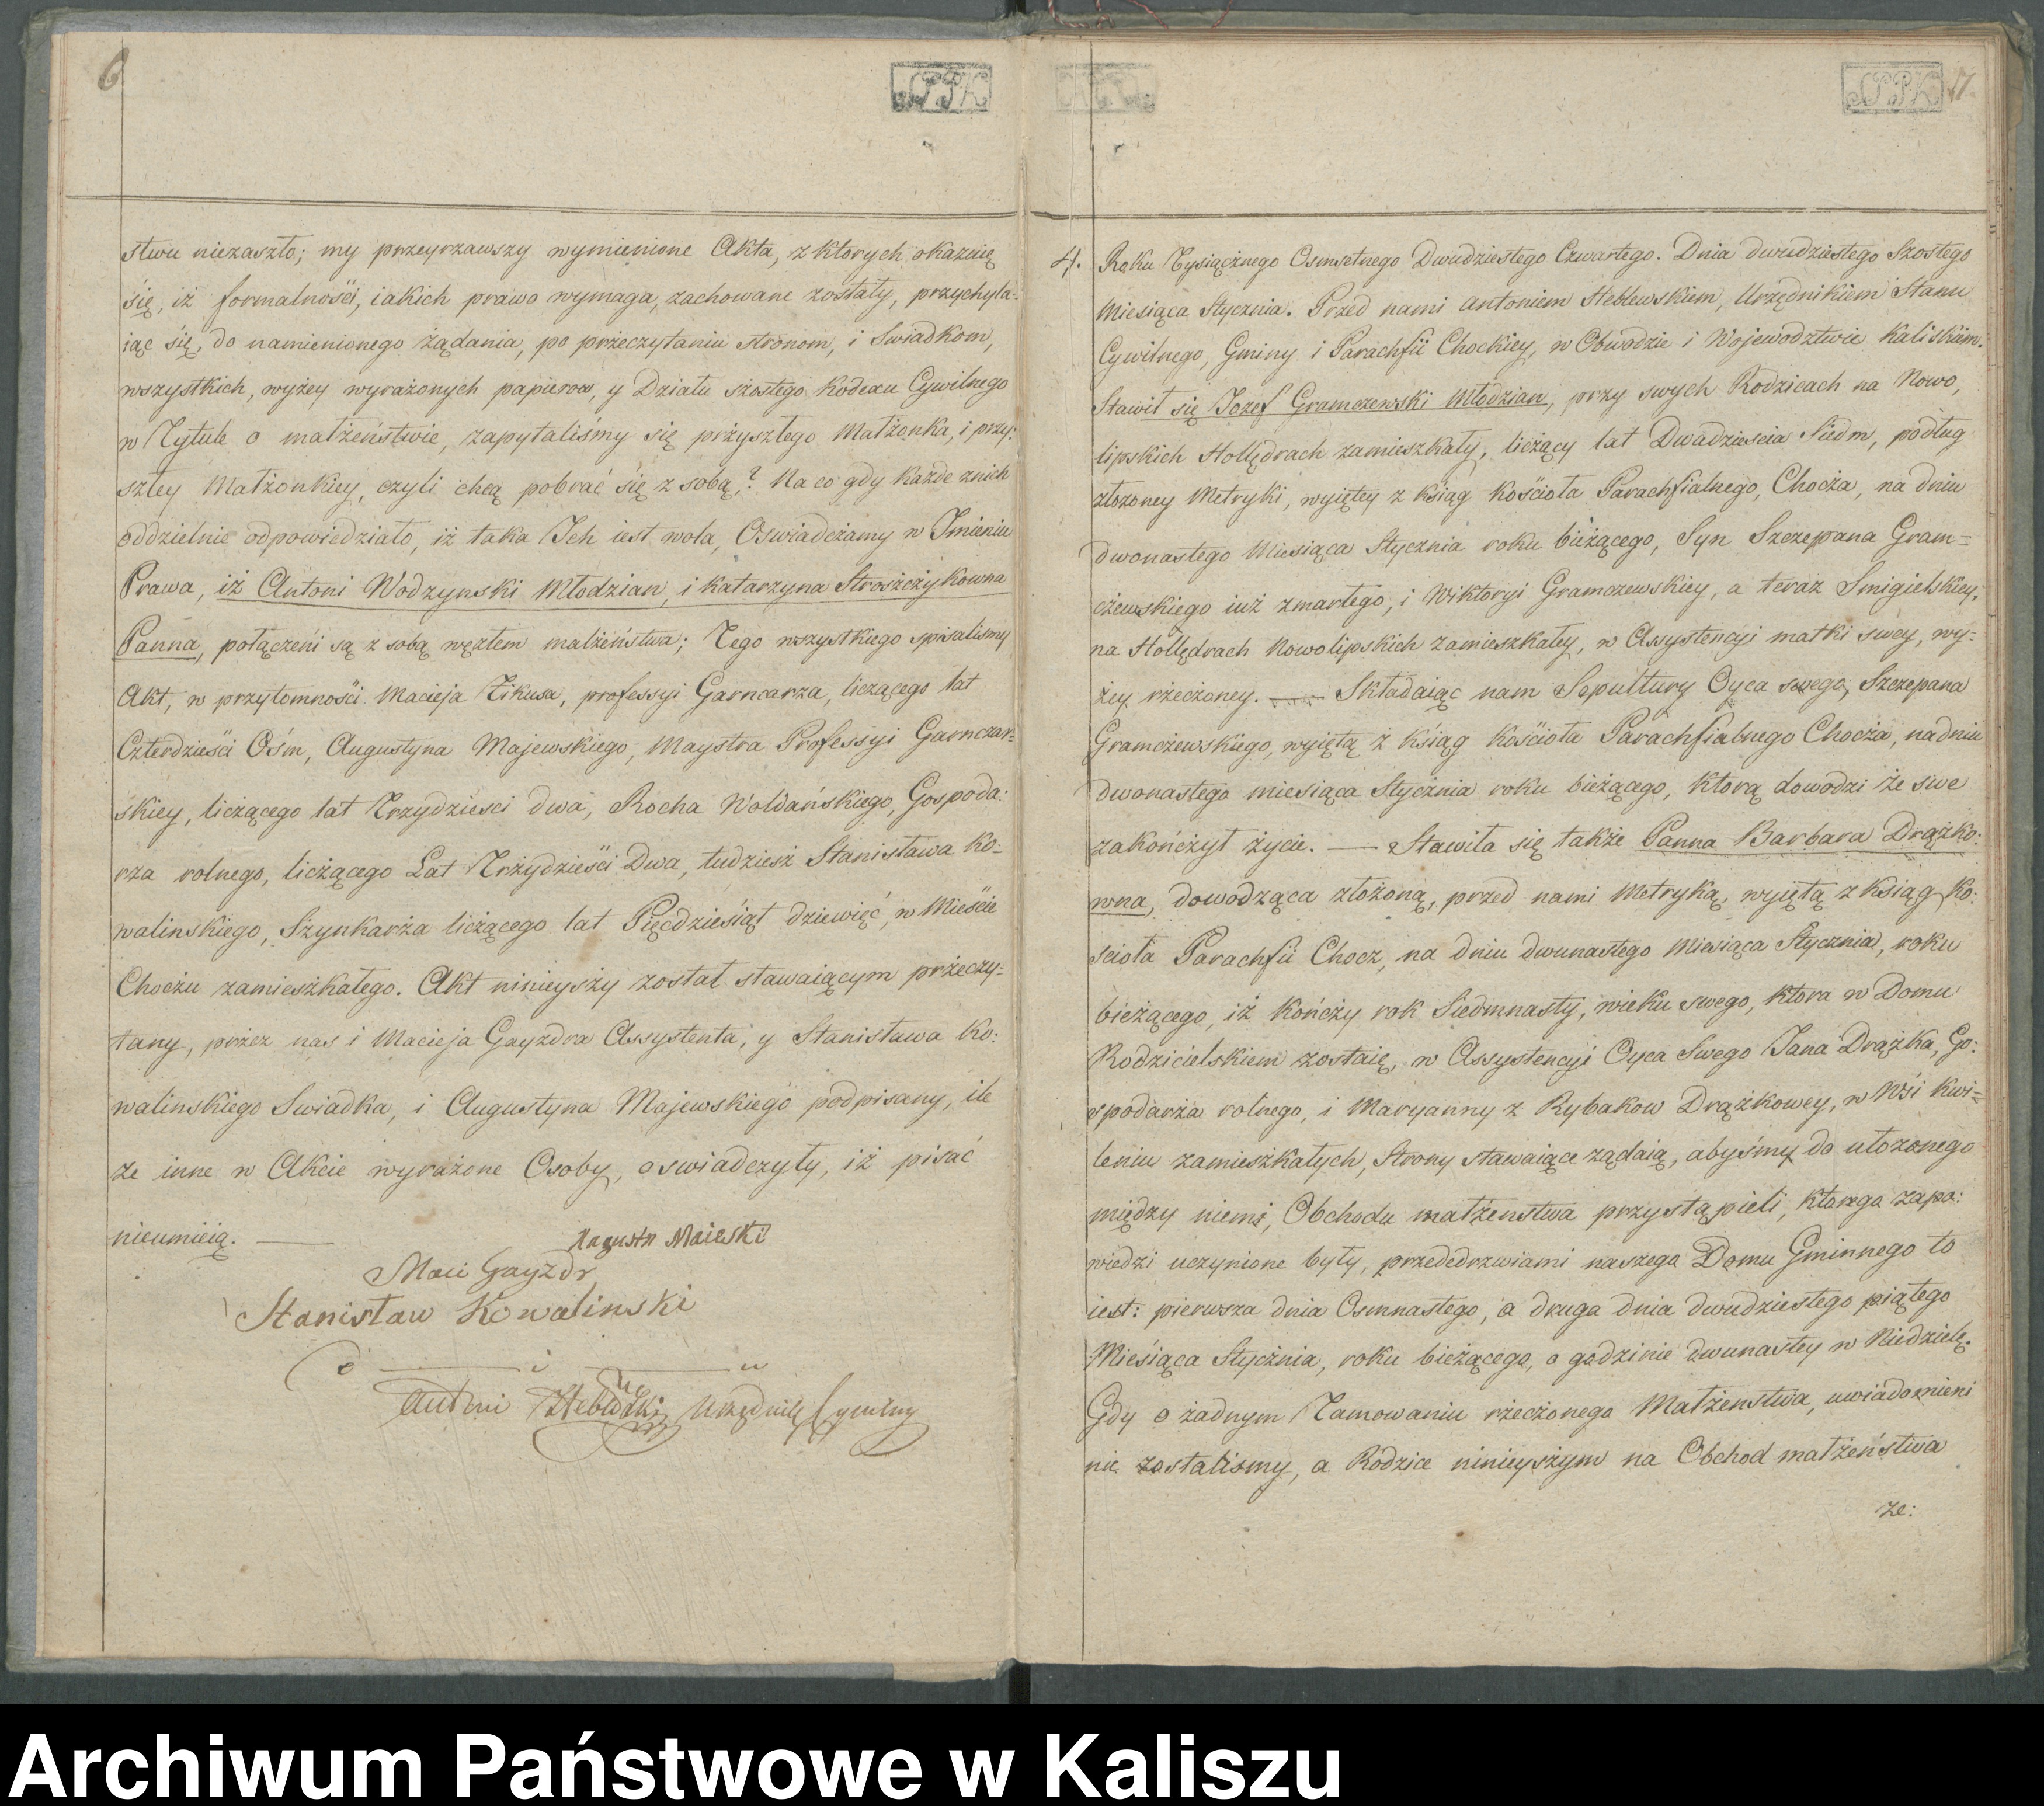 6
SPK
stwu niezaszło; my przeyrzawszy wymienione Akta, z ktorych okazuię
się, iż formalności, iakich prawo wymaga, zachowane zostały, przychyla-
iąc się, do namienionego żądania, po przeczytaniu stronom, i Swiadkom,
wszystkich, wyżey wyrażonych papierow, y Działu szostego Kodexu Cywilnego
w Tytule o małżeństwie, zapytaliśmy się przyszłego Małżonka, i przy:
szłey Małżonkiey, czyli chcą pobrać się z sobą,? Na co gdy każde znich
oddzielnie odpowiedziało, iż taka Ich iest wola, Oswiadczamy w Imieniu
Prawa, iż Antoni Wodzynski Młodzian, i Katarzyna Stroszczykowna
Panna, połączeni są z sobą węzłem małżeństwa; Tego wszystkiego spisalismy
Akt, w przytomności Macieja Zikusa, professyi Garncarza, liczącego lat
Czterdzieści Ośm, Augustyna Majewskiego, Maystra Professyi Garnczar-
skiey, liczącego lat Trzydziesci dwa, Rocha Woldańskiego, Gospoda:
rza rolnego, liczącego Lat Trzydzieści Dwa, tudziesz Stanisława Ko-
walinskiego, Szynkarza liczącego lat Pięcdziesiąt dziewięć, w Mieście
Choczu zamieszkałego. Akt ninieyszy został stawaiącym przeczy-
tany, przez nas i Macieja Gayzdra Assystenta, y Stanisława Ko:
walinskiego Swiadka, i Augustyna Majewskiego podpisany, ile
że inne w Akcie wyrażone Osoby, oswiadczyły, iż pisać
nieumieią.
Augustn Maieski
Maci Gayzdr
Stanisław Kowalinski
Antoni Urzędnik Cywilny
SPK 7.
4. Roku Tysiącznego Osmsetnego Dwudziestego Czwartego. Dnia dwudziestego Szostego
Miesiąca Stycznia. Przed nami Antoniem Heblewskiem, Urzędnikiem Stanu
Cywilnego, Gminy i Parachfii Chockiey, w Obwodzie i Wojewodztwie Kaliskiem.
Stawił się Jozef Gramczewski Młodzian, przy swych Rodzicach na Nowo,
lipskich Hollędrach zamieszkały, liczący lat Dwadziescia Siedm, podług
złozoney Metryki, wyiętey z ksiąg kościoła Parachfialnego, Chocża, na dniu
dwonastego Miesiąca Stycznia roku bieżącego, Syn Szczepana Gram=
czewskiego iuż zmarłego, i Wiktoryi Gramczewskiey, a teraz Smigielskiey,
na Hollędrach Nowolipskich zamieszkałey, w Assystencyi matki swey, wy-
żey rzeczoney. Składaiąc nam Sepultury Oyca swego, Szczepana
Gramczewskiego, wyiętą z ksiąg Kościoła Parachfialnego Chocża, nadniu
dwonastego miesiąca Stycznia roku bieżącego, ktorą dowodzi że swe
zakończył życie. — Stawiła się także Panna Barbara Drążko:
wna, dowodząca złożoną, przed nami Metryką, wyiętą z ksiąg Ko:
scioła Parachfii Chocz, na dniu dwunastego Miesiąca Stycznia, roku
bieżącego, iż kończy rok Siedmnasty, wieku swego, ktora w Domu
Rodzicielskiem zostaię, w Assystencyi Oyca Swego Jana Drążka, Go:
spodarza rolnego, i Maryanny z Rybakow Drążkowey, w Wsi Kwi=
leniu zamieszkałych, Strony stawaiące ządaią, abyśmy do ułozonego
między niemi, Obchodu małżenstwa przystąpieli, ktorego zapo:
wiedzi uczynione były, przededrzwiami naszego Domu Gminnego to
iest: pierwsza dnia Osmnastego, a druga dnia dwudziestego piątego
Miesiąca Stycznia, roku bieżącego, o godzinie dwunastey w Niedzielę.
Gdy o żadnym Tamowaniu rzeczonego Małżenstwa, uwiadomieni
nie zostalismy, a Rodzice ninieyszym na Obchod małżeństwa
ze:
Archiwum Państwowe w Kaliszu